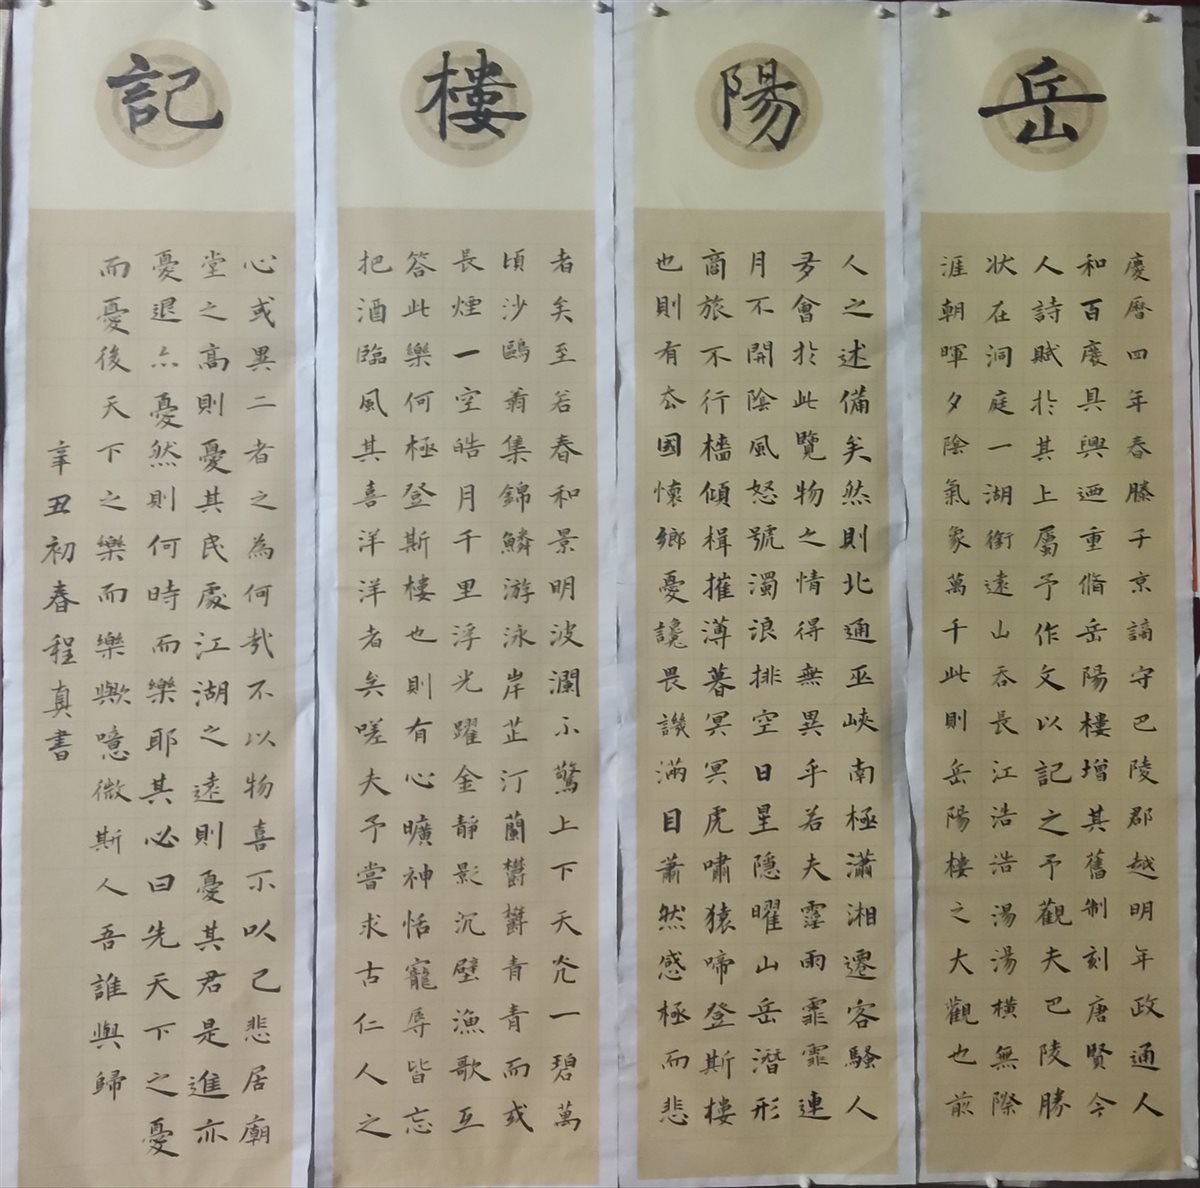 岳
慶曆四年春滕子京謫守巴陵郡越明年政通人
和百廢具興迺重脩岳陽樓增其舊制刻唐賢今
人詩賦於其上屬予作文以記之予觀夫巴陵勝
狀在洞庭一湖銜遠山吞長江浩浩湯湯橫無際
涯朝暉夕陰氣象萬千此則岳陽樓之大觀也前
陽
人之述備矣然則北通巫峽南極瀟湘遷客騷人
多會於此覽物之情得無異乎若夫霪雨霏霏連
月不開陰風怒號濁浪排空日星隱曜山岳潛形
商旅不行檣傾楫摧薄暮冥冥虎嘯猿啼登斯樓
也則有去國懷鄉憂讒畏譏滿目蕭然感極而悲
樓
者矣至若春和景明波瀾不驚上下天光一碧萬
頃沙鷗翔集錦鱗游泳岸芷汀蘭鬱鬱青青而或
長煙一空皓月千里浮光躍金靜影沉璧漁歌互
答此樂何極登斯樓也則有心曠神怡寵辱皆忘
把酒臨風其喜洋洋者矣嗟夫予嘗求古仁人之
記
心或異二者之為何哉不以物喜不以己悲居廟
堂之高則憂其民處江湖之遠則憂其君是進亦
憂退亦憂然則何時而樂耶其必曰先天下之憂
而憂後天下之樂而樂歟噫微斯人吾誰與歸
辛丑初春程真書